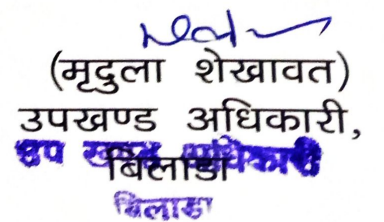 (मृदुला शेखावत)
उपखण्ड अधिकारी,
बिलाडा
उप खण्ड अधिकारी
बिलाडा